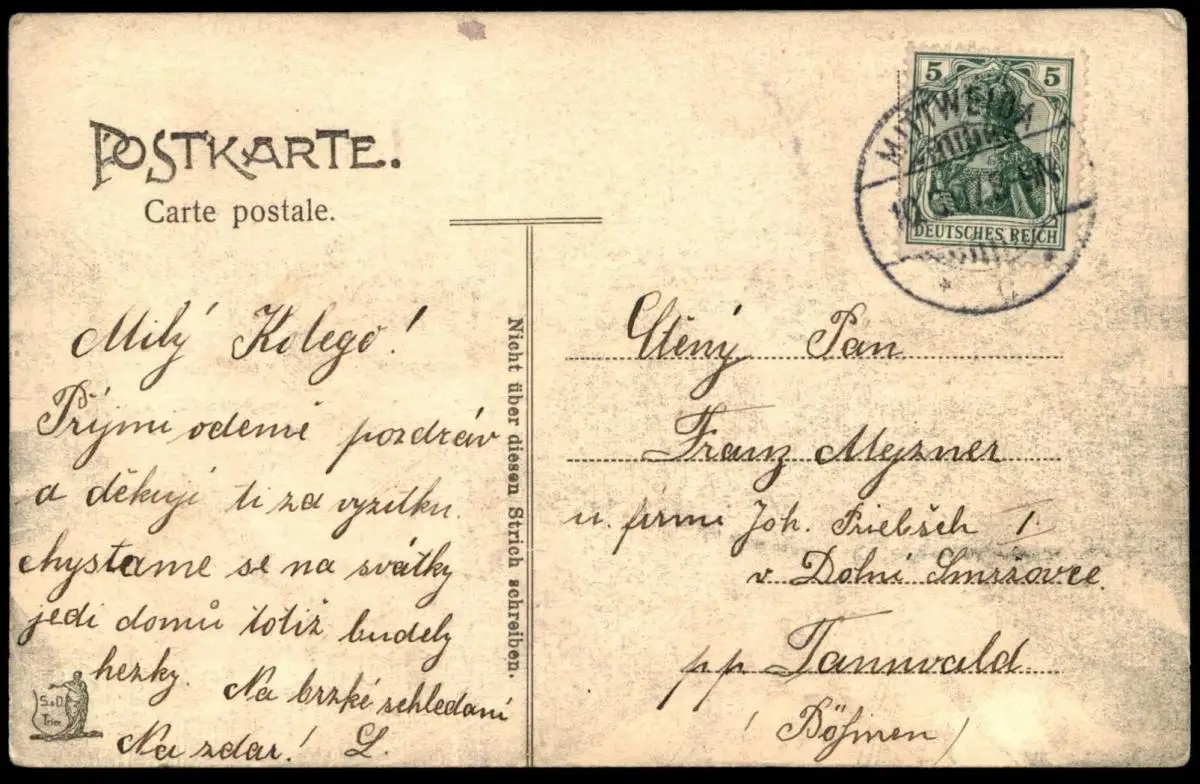 POSTKARTE.
Carte postale.
5 5
DEUTSCHES REICH
MITTWEIDA
Milý Kolego!
Prýjmi odemě pozdráv
a děkuji ti za vyzitku.
chystáme se na svátky
jedi domů totiž budely
hezky. Na brzké sehledani
Na zdar! L.
Nicht über diesen Strich schreiben.
Ctěný Pan
Franz Mejzner
u firmi Joh. Priebsch I
v Dolní Smržovce
pp Tannwald
(Böhmen)
S&D
Trier